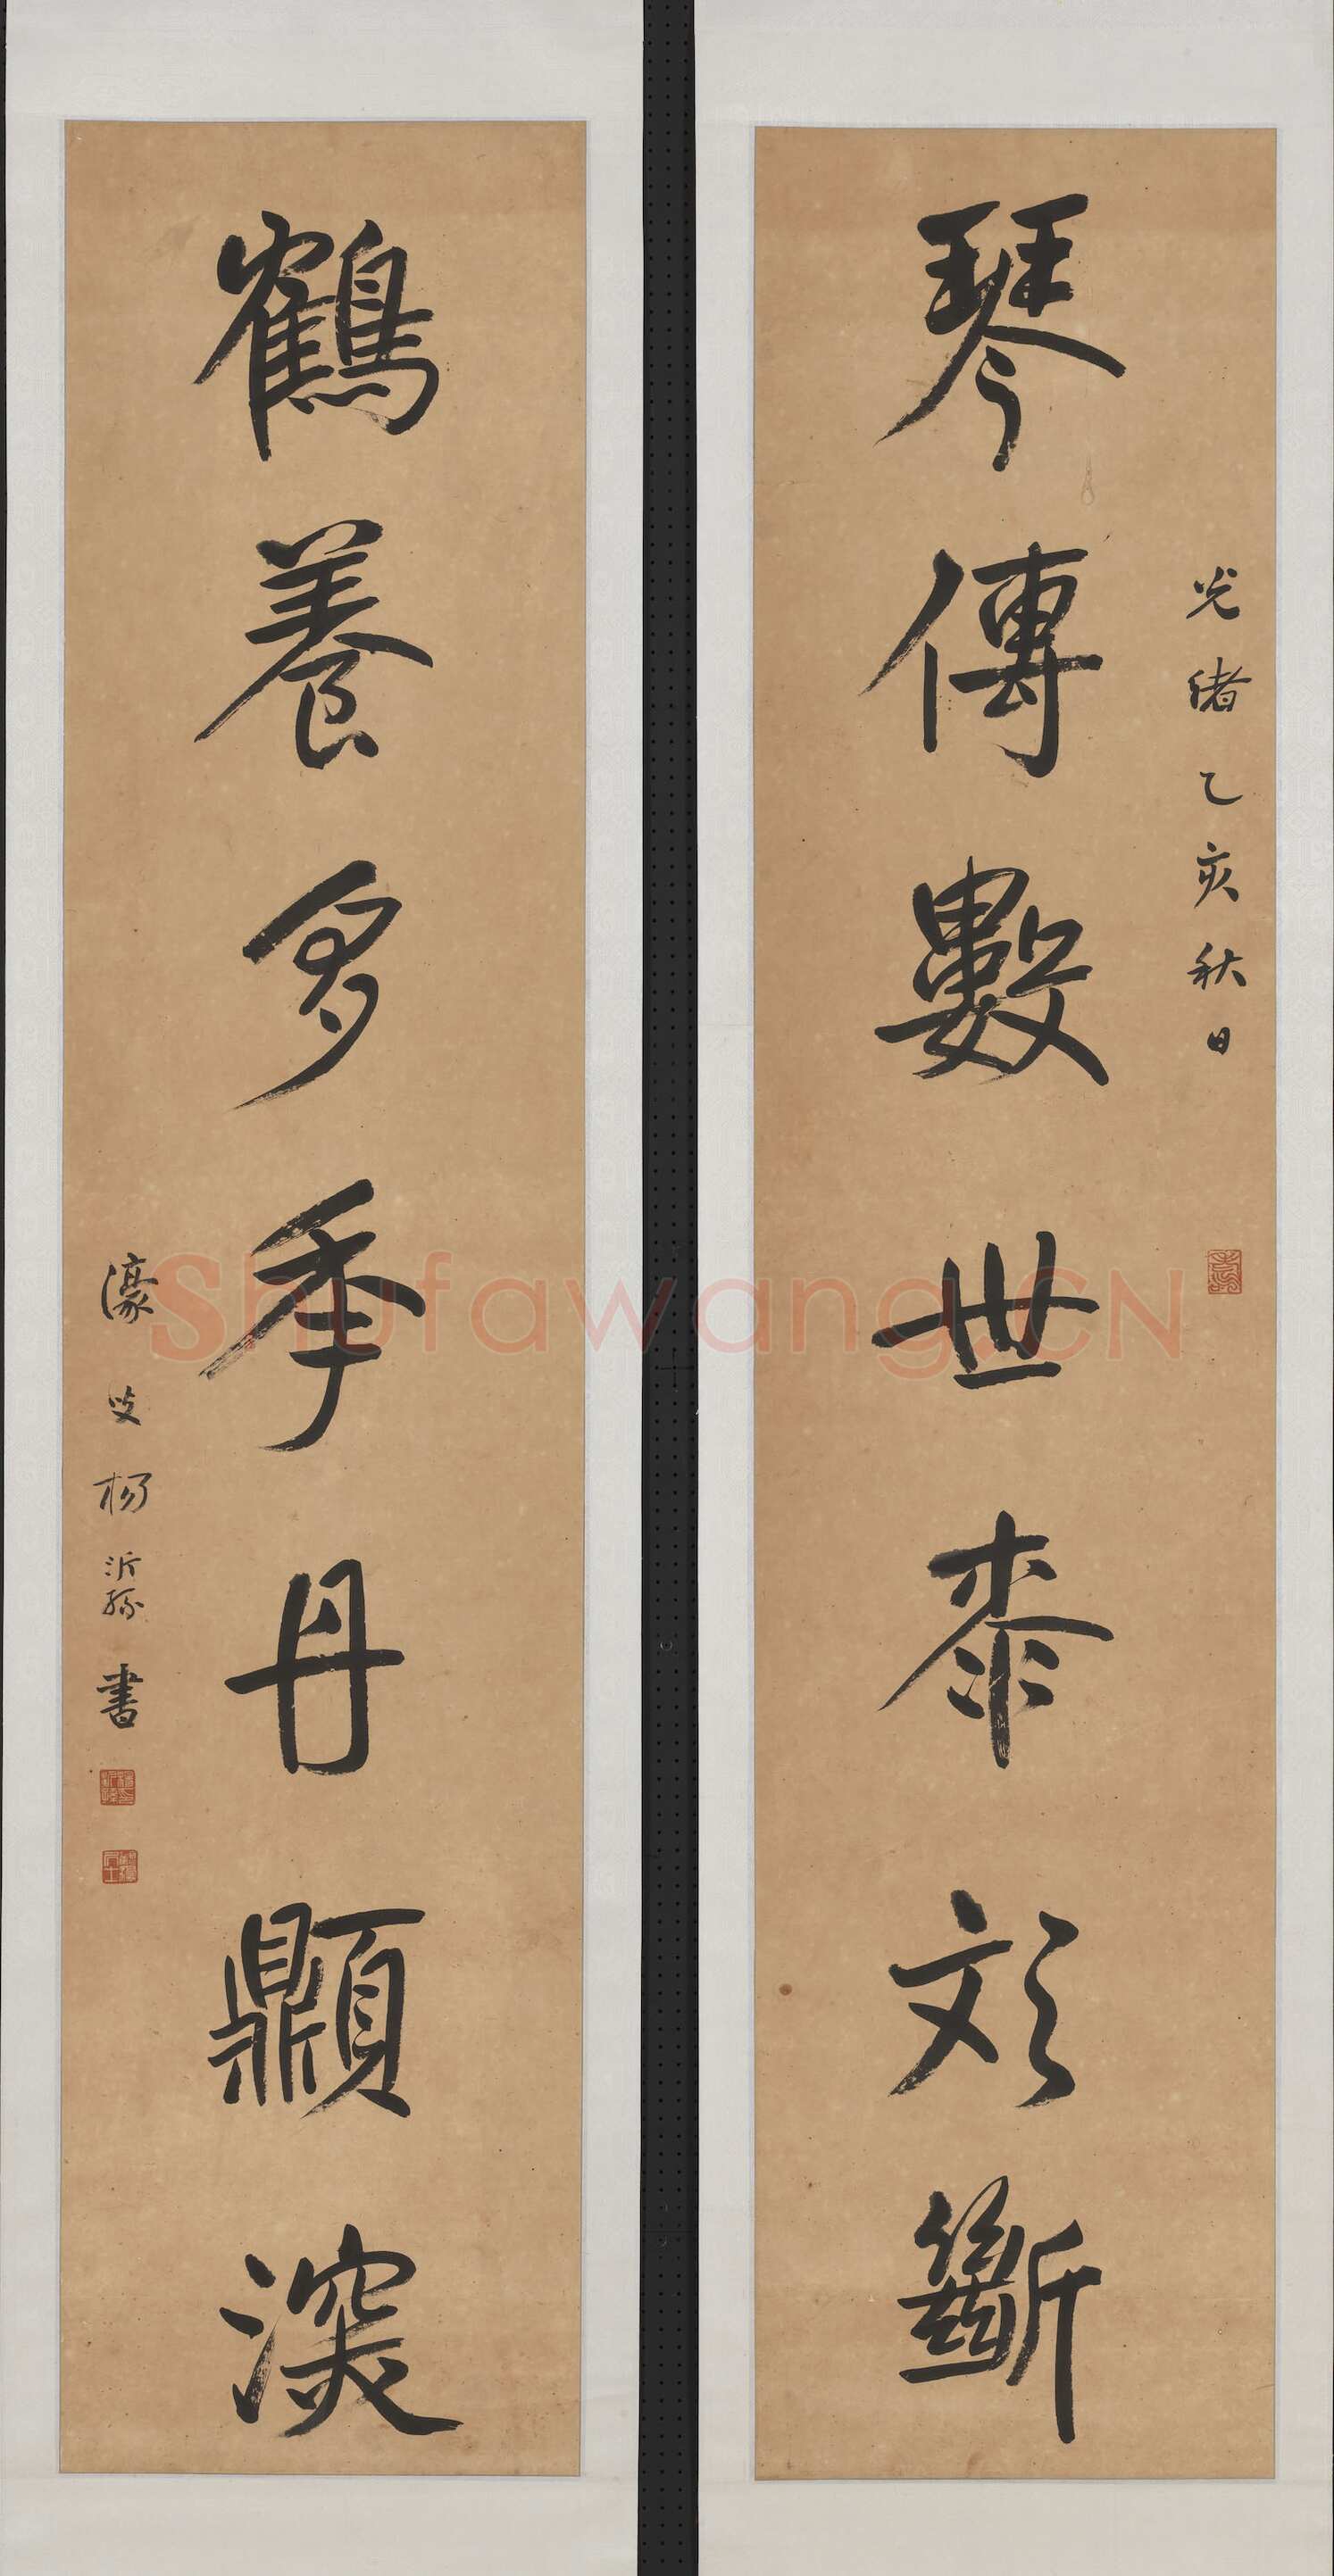 光緒乙亥秋日
琴傳數世桼文斷
鶴養多季丹顛深
濠叟楊沂孫書
Shufawang.CN